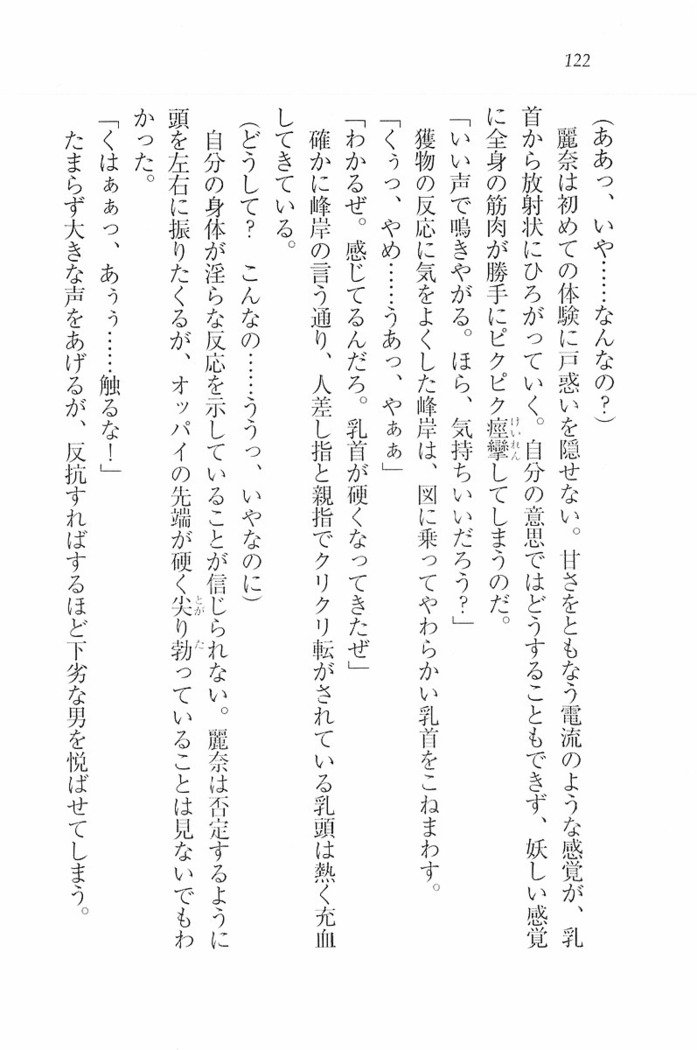 122
(ああっ、いや……なんなの?)
麗奈は初めての体験に戸惑いを隠せない。甘さをともなう電流のような感覚が、乳
首から放射状にひろがっていく。自分の意思ではどうすることもできず、妖しい感覚
に全身の筋肉が勝手にピクピク痙攣してしまうのだ。
「いい声で鳴きやがる。ほら、気持ちいいだろう?」
獲物の反応に気をよくした峰岸は、図に乗ってやわらかい乳首をこねまわす。
「くぅっ、やめ……うあっ、やぁぁ」
「わかるぜ。感じてるんだろ。乳首が硬くなってきたぜ」
確かに峰岸の言う通り、人差し指と親指でクリクリ転がされている乳頭は熱く充血
してきている。
(どうして? こんなの……ううっ、いやなのに)
自分の身体が淫らな反応を示していることが信じられない。麗奈は否定するように
頭を左右に振りたくるが、オッパイの先端が硬く尖り勃っていることは見ないでもわ
かった。
「くはぁぁっ、あぅぅ……触るな!」
たまらず大きな声をあげるが、反抗すればするほど下劣な男を悦ばせてしまう。